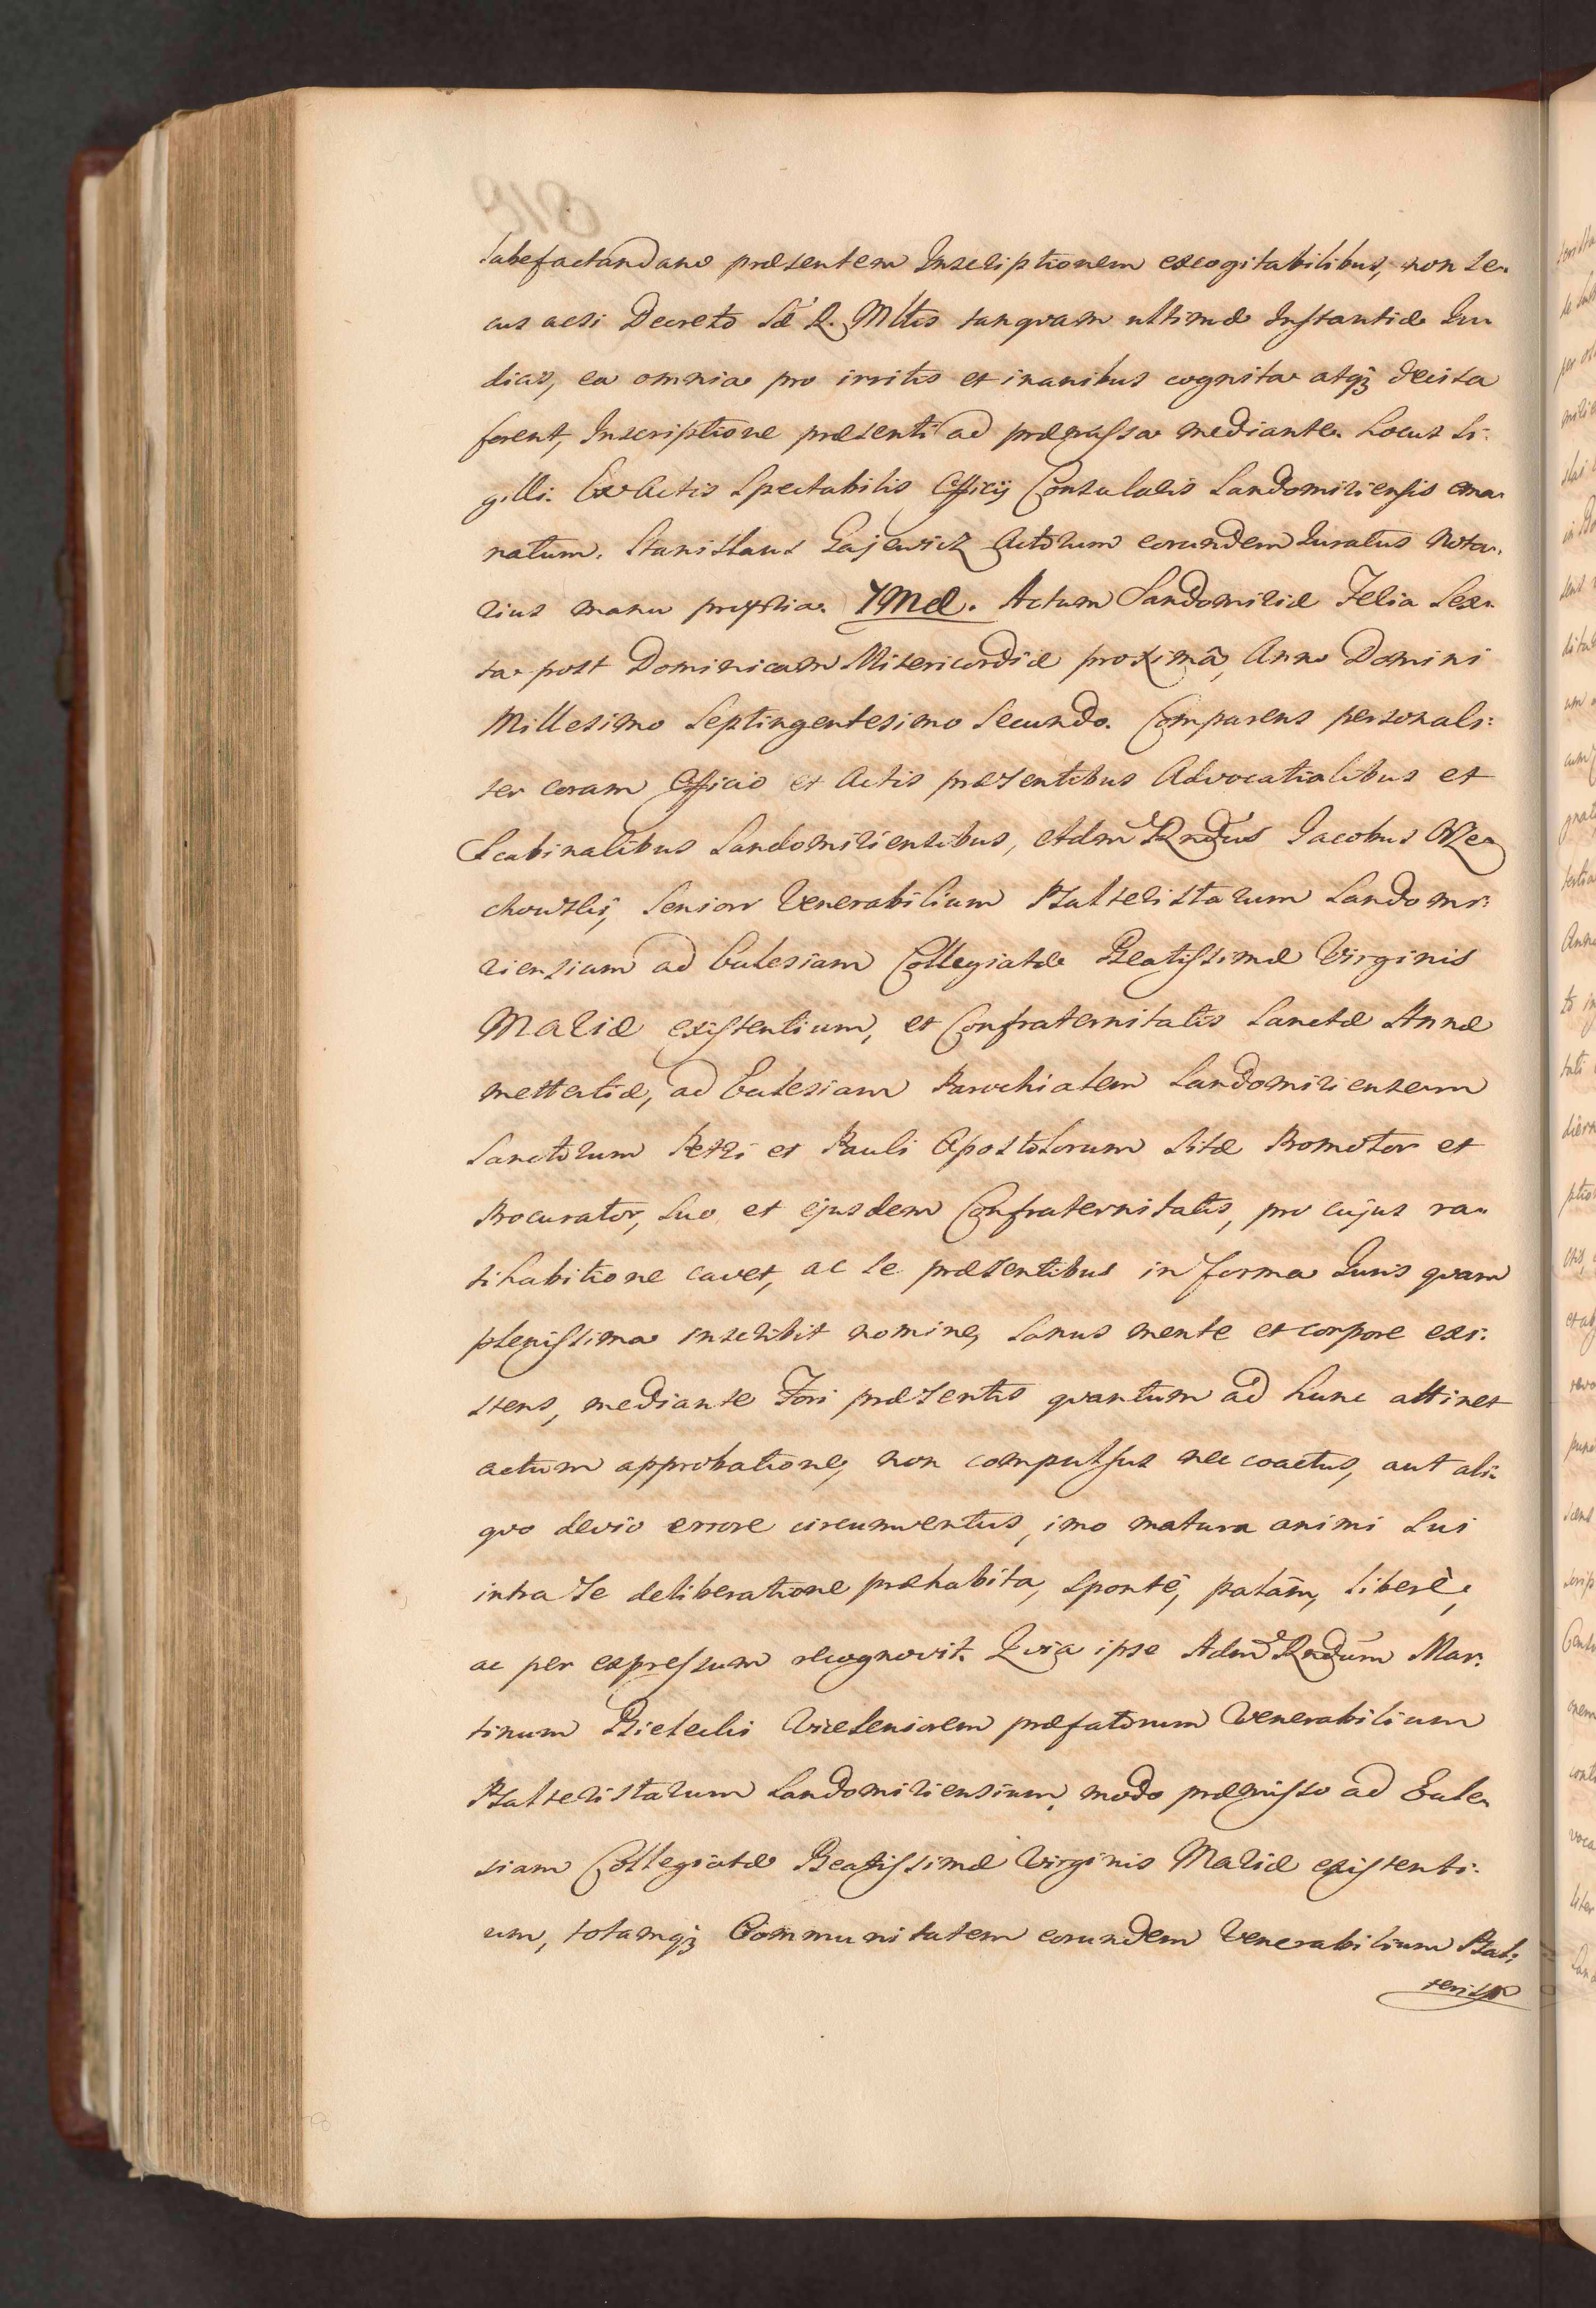 labefactandam præsentem Inscriptionem excogitabilibus, non se-
cus acsi Decreto Sæ R. Mttis tanqvam ultimæ Instantiæ Iu-
dicis, ea omnia pro irritis et inanibus cognita atq3 decisa
forent, Inscriptione præsenti ad præmissa mediante. Locus Si-
gilli. Ex Actis Spectabilis Officij Consularis Sandomiriensis ema-
natum. Stanislaus Gajewicz Actorum eorundem Iuratus Nota-
rius manu propria. Actum Sandomiriæ Feria Sex-
ta post Dominicam Misericordiæ proximâ, Anno Domini
Millesimo Septingentesimo Secundo. Comparens personali-
ter coram Officio et Actis præsentibus Advocatialibus et
Scabinalibus Sandomiriensibus, Adm Rndus Jacobus
chowski, Senior Venerabilium Psalteristarum Sandomi-
riensium ad Eclesiam Collegiatæ Beatissimæ Virginis
Mariæ existentium, et Confraternitatis Sanctæ Annæ
mettertiæ, ad Eclesiam Parochialem Sandomiriensem
Sanctorum Petri et Pauli Apostolorum sitæ Promotor et
Procurator, suo et ejusdem Confraternitatis, pro cujus ra-
tihabitione cavet, ac se præsentibus in forma Iuris qvam
plenissima inscribit nomine, sanus mente et corpore exi-
stens, mediante Fori præsentis qvantum ad hunc attinet
actum approbatione, non compulsus nec coactus, aut ali-
qvo devio errore circumventus, imo matura animi sui
intra se deliberatione præhabita, sponte, palàm, liberè,
ac per expressum recognovit. Qvia ipse Adm Rndum Mar-
tinum Bielecki Viceseniorem præfatorum Venerabilium
Psalteristarum Sandomiriensium, modo præmisso ad Ecle-
siam Collegiatæ Beatissimæ Virginis Mariæ existenti-
um, totamq3 Communitatem eorundem Venerabilium Psal-
terist